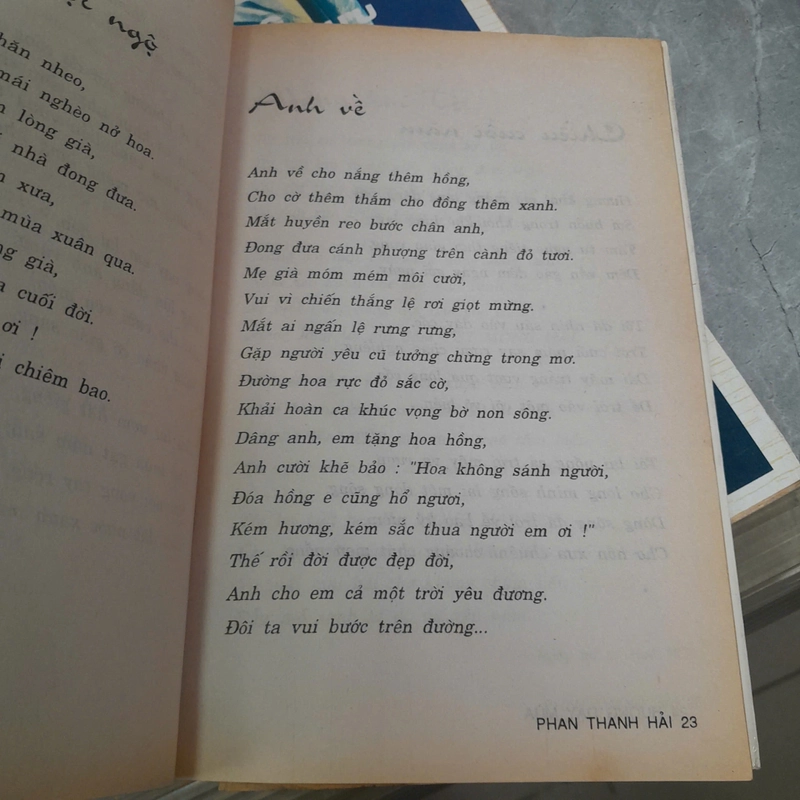 ngộ
nhăn nheo,
mái nghèo nở hoa.
lòng già,
nhã đong đưa.
xưa,
mùa xuân qua.
già,
cuối đời.
ơi !
chiêm bao.
Anh về
Anh về cho nắng thêm hồng,
Cho cờ thêm thắm cho đồng thêm xanh.
Mắt huyền reo bước chân anh,
Đong đưa cánh phượng trên cành đỏ tươi.
Mẹ già móm mém môi cười,
Vui vì chiến thắng lệ rơi giọt mừng.
Mắt ai ngấn lệ rưng rưng,
Gặp người yêu cũ tưởng chừng trong mơ.
Đường hoa rực đỏ sắc cờ,
Khải hoàn ca khúc vọng bờ non sông.
Dâng anh, em tặng hoa hồng,
Anh cười khẽ bảo : "Hoa không sánh người,
Đóa hồng e cũng hổ ngươi,
Kém hương, kém sắc thua người em ơi !"
Thế rồi đời được đẹp đời,
Anh cho em cả một trời yêu đương.
Đôi ta vui bước trên đường...
PHAN THANH HẢI 23